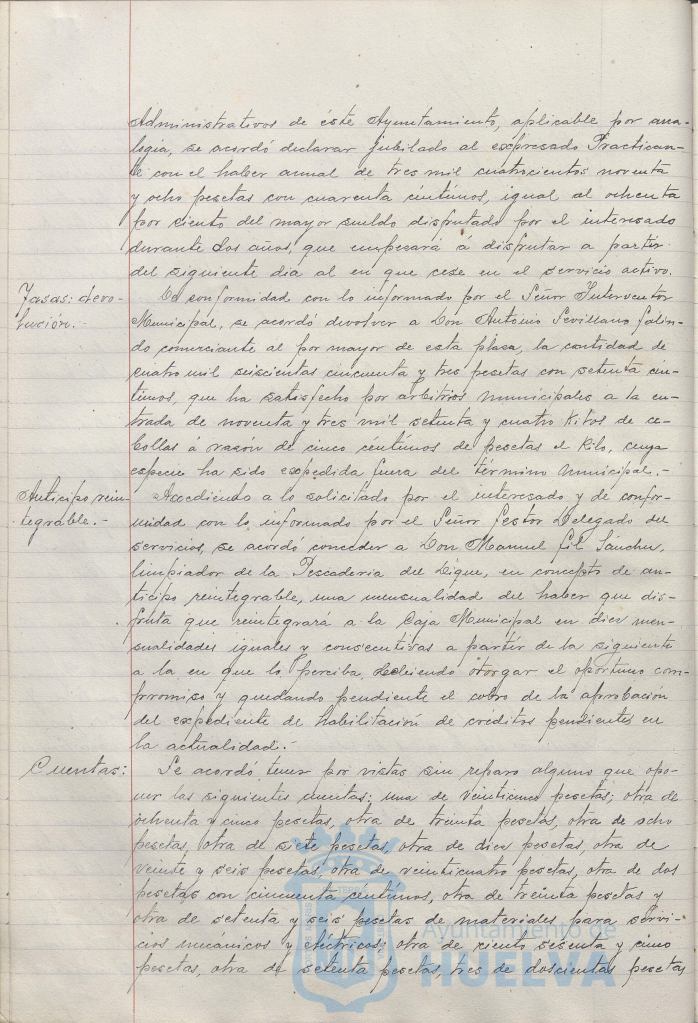 Administrativos de éste Ayuntamiento, aplicable por ana-
logia, se acordó declarar jubilado al expresado Practican-
te con el haber anual de tres mil cuatrocientos noventa
y ocho pesetas con cuarenta céntimos, igual al ochenta
por ciento del mayor sueldo disfrutado por el interesado
durante dos años, que empezará á disfrutar a partir
del siguiente dia al en que cese en el servicio activo.
Tasas: devo-
lución.-
De conformidad con lo informado por el Señor Interventor
Municipal, se acordó devolver a Don Antonio Sevillano Galin-
do comerciante al por mayor de esta plaza, la cantidad de
cuatro mil seiscientas cincuenta y tres pesetas con setenta cén-
timos, que ha satisfecho por arbitrios municipales a la en-
trada de noventa y tres mil setenta y cuatro Kilos de ce-
bollas á razón de cinco céntimos de pesetas el Kilo, cuya
especie ha sido expedida fuera del término municipal.-
Anticipo rein-
tegrable.-
Accediendo a lo solicitado por el interesado y de confor-
midad con lo informado por el Señor Gestor Delegado del
servicios, se acordó conceder a Don Manuel Gil Sánchez,
limpiador de la Pescaderia del Dique, en concepto de an-
ticipo reintegrable, una mensualidad del haber que dis-
fruta que reintegrará a la Caja Municipal en diez men-
sualidades iguales y consecutivas a partir de la siguiente
a la en que lo perciba, debiendo otorgar el oportuno com-
promiso y quedando pendiente el cobro de la aprobación
del expediente de habilitación de creditos pendientes en
la actualidad.-
Cuentas:
Se acordó tener por vistas sin reparo alguno que opo-
ner las siguientes cuentas: una de veinticinco pesetas; otra de
ochenta y cinco pesetas, otra de treinta pesetas, otra de ocho
pesetas, otra de siete pesetas, otra de diez pesetas, otra de
veinte y seis pesetas, otra de veinticuatro pesetas, otra de dos
pesetas con cincuenta céntimos, otra de treinta pesetas y
otra de setenta y seis pesetas de materiales para servi-
cios mecánicos y eléctricos; otra de ciento sesenta y cinco
pesetas, otra de setenta pesetas, tres de doscientas pesetas
Ayuntamiento de
HUELVA